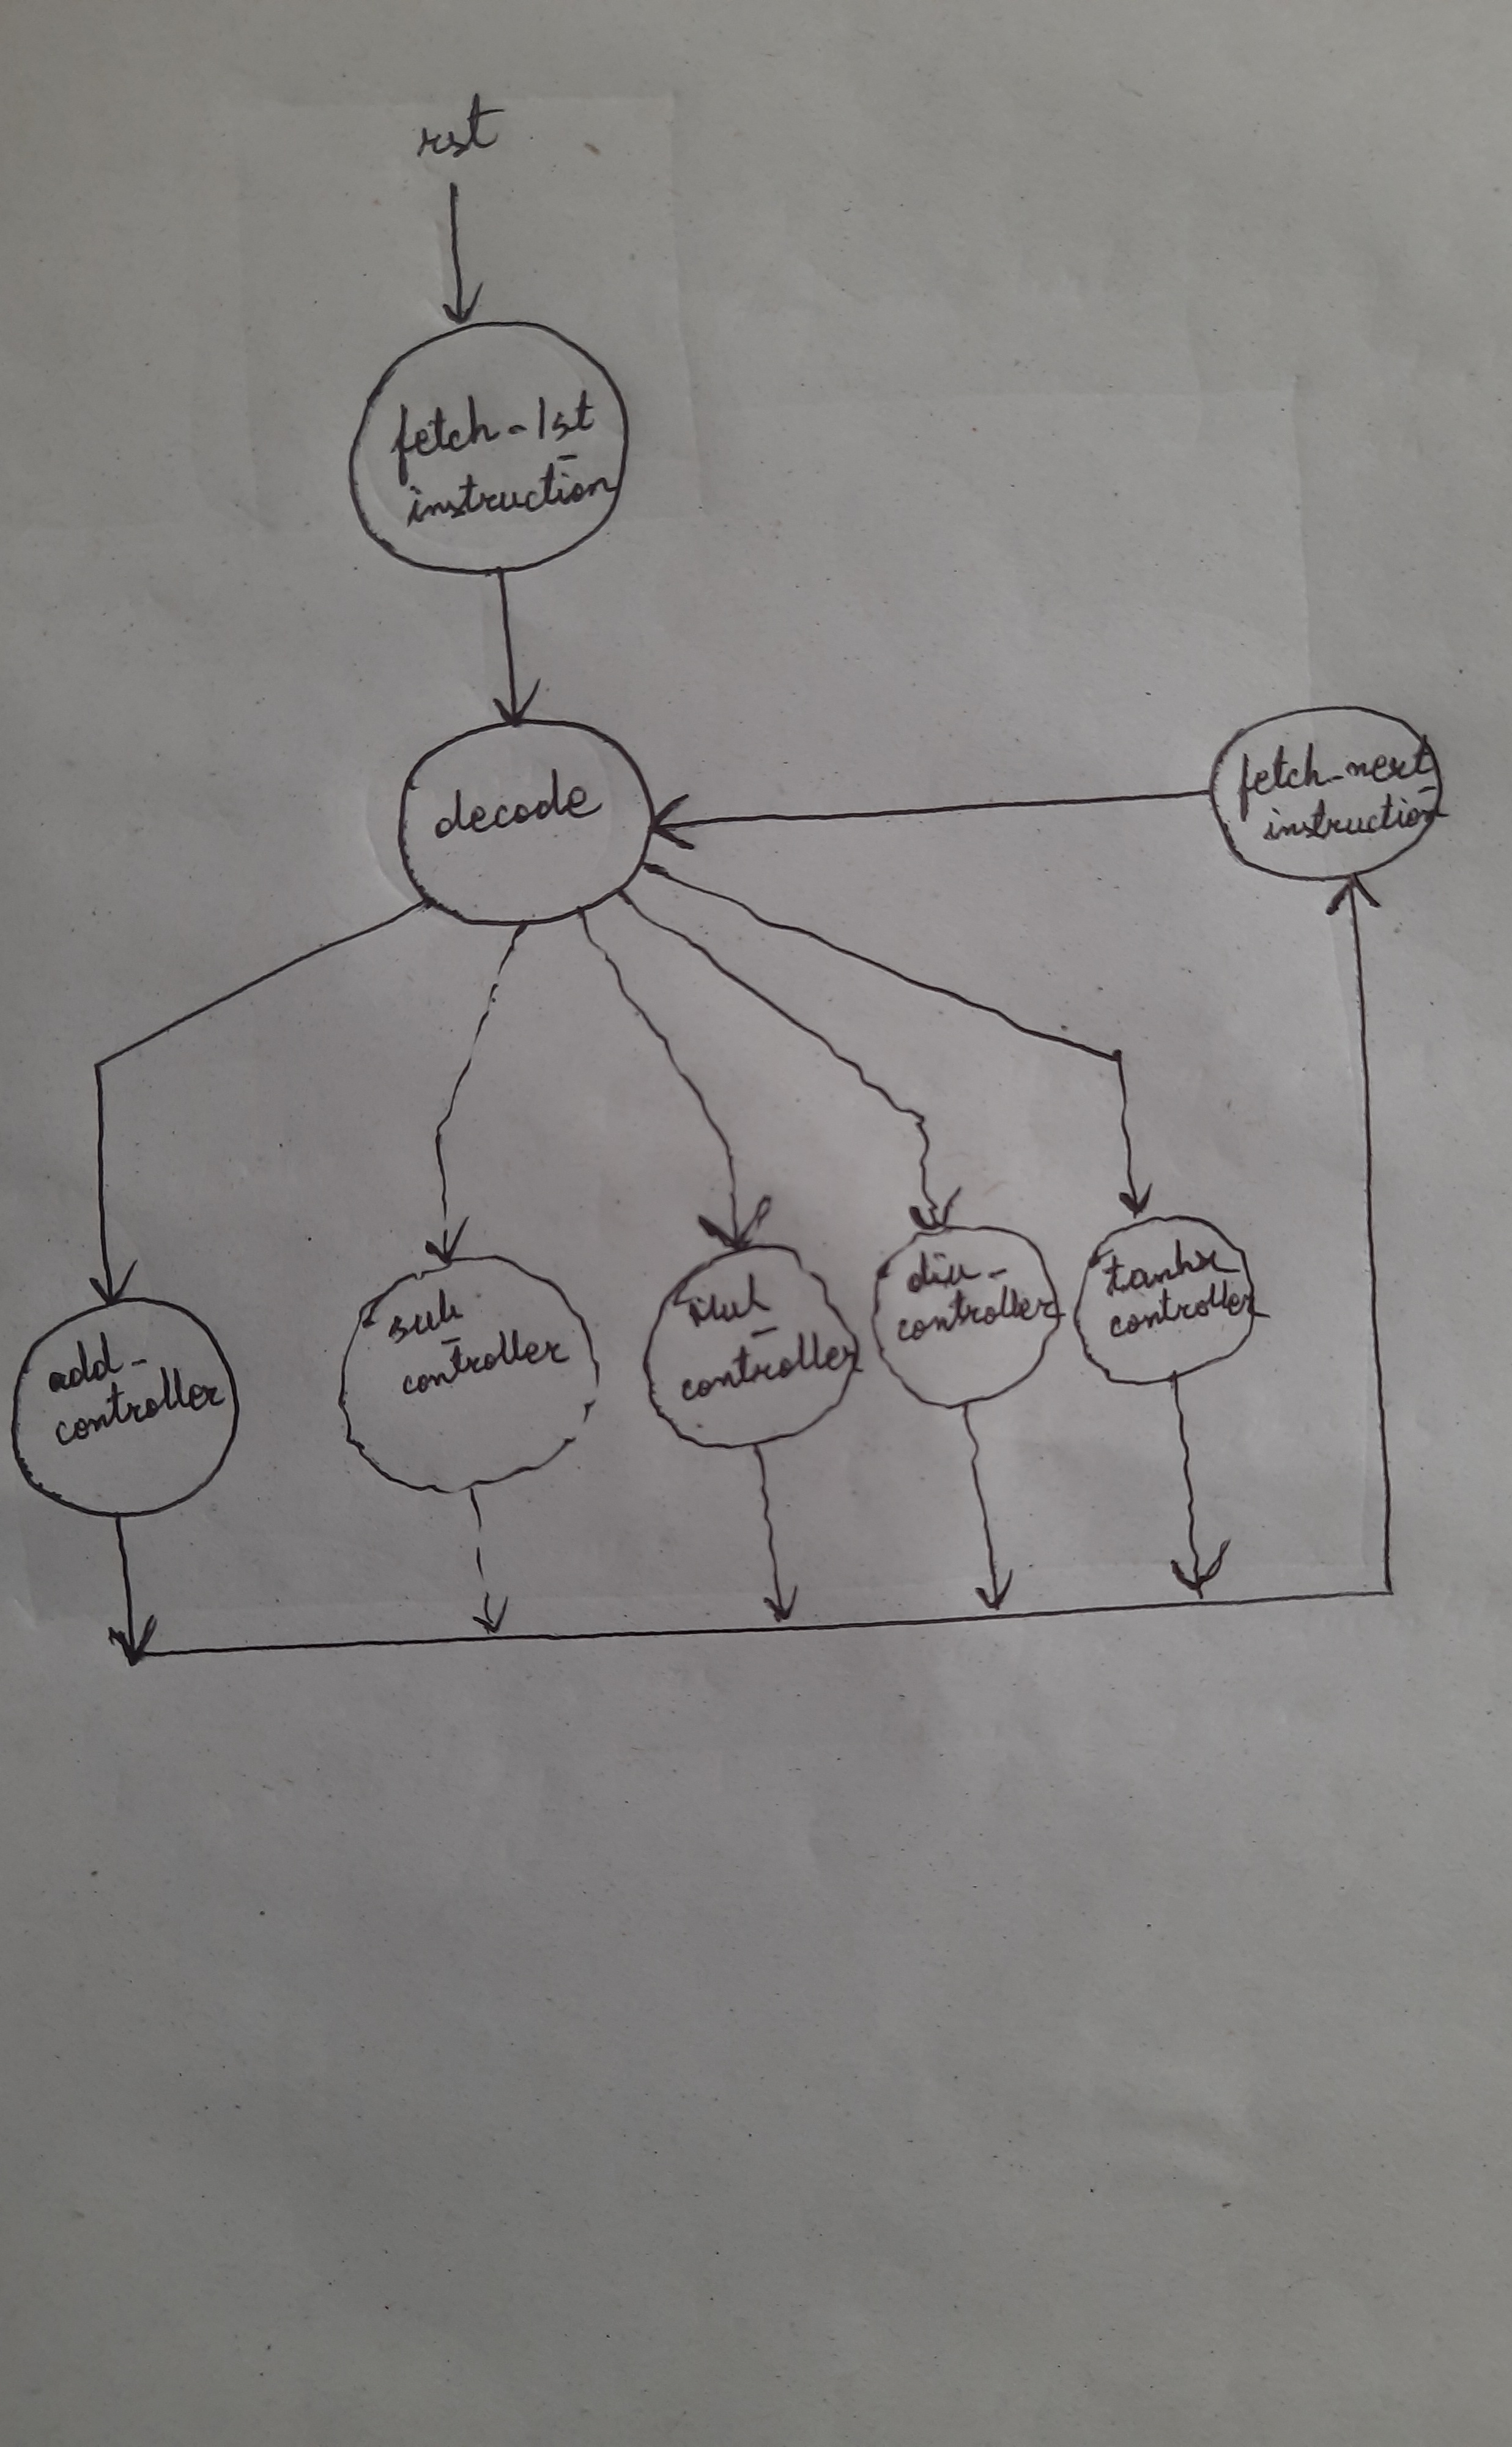 rst
fetch-1st
instruction
decode
fetch-next
instruction
add-
controller
sub
controller
mul
controller
div-
controller
tanhx
controller